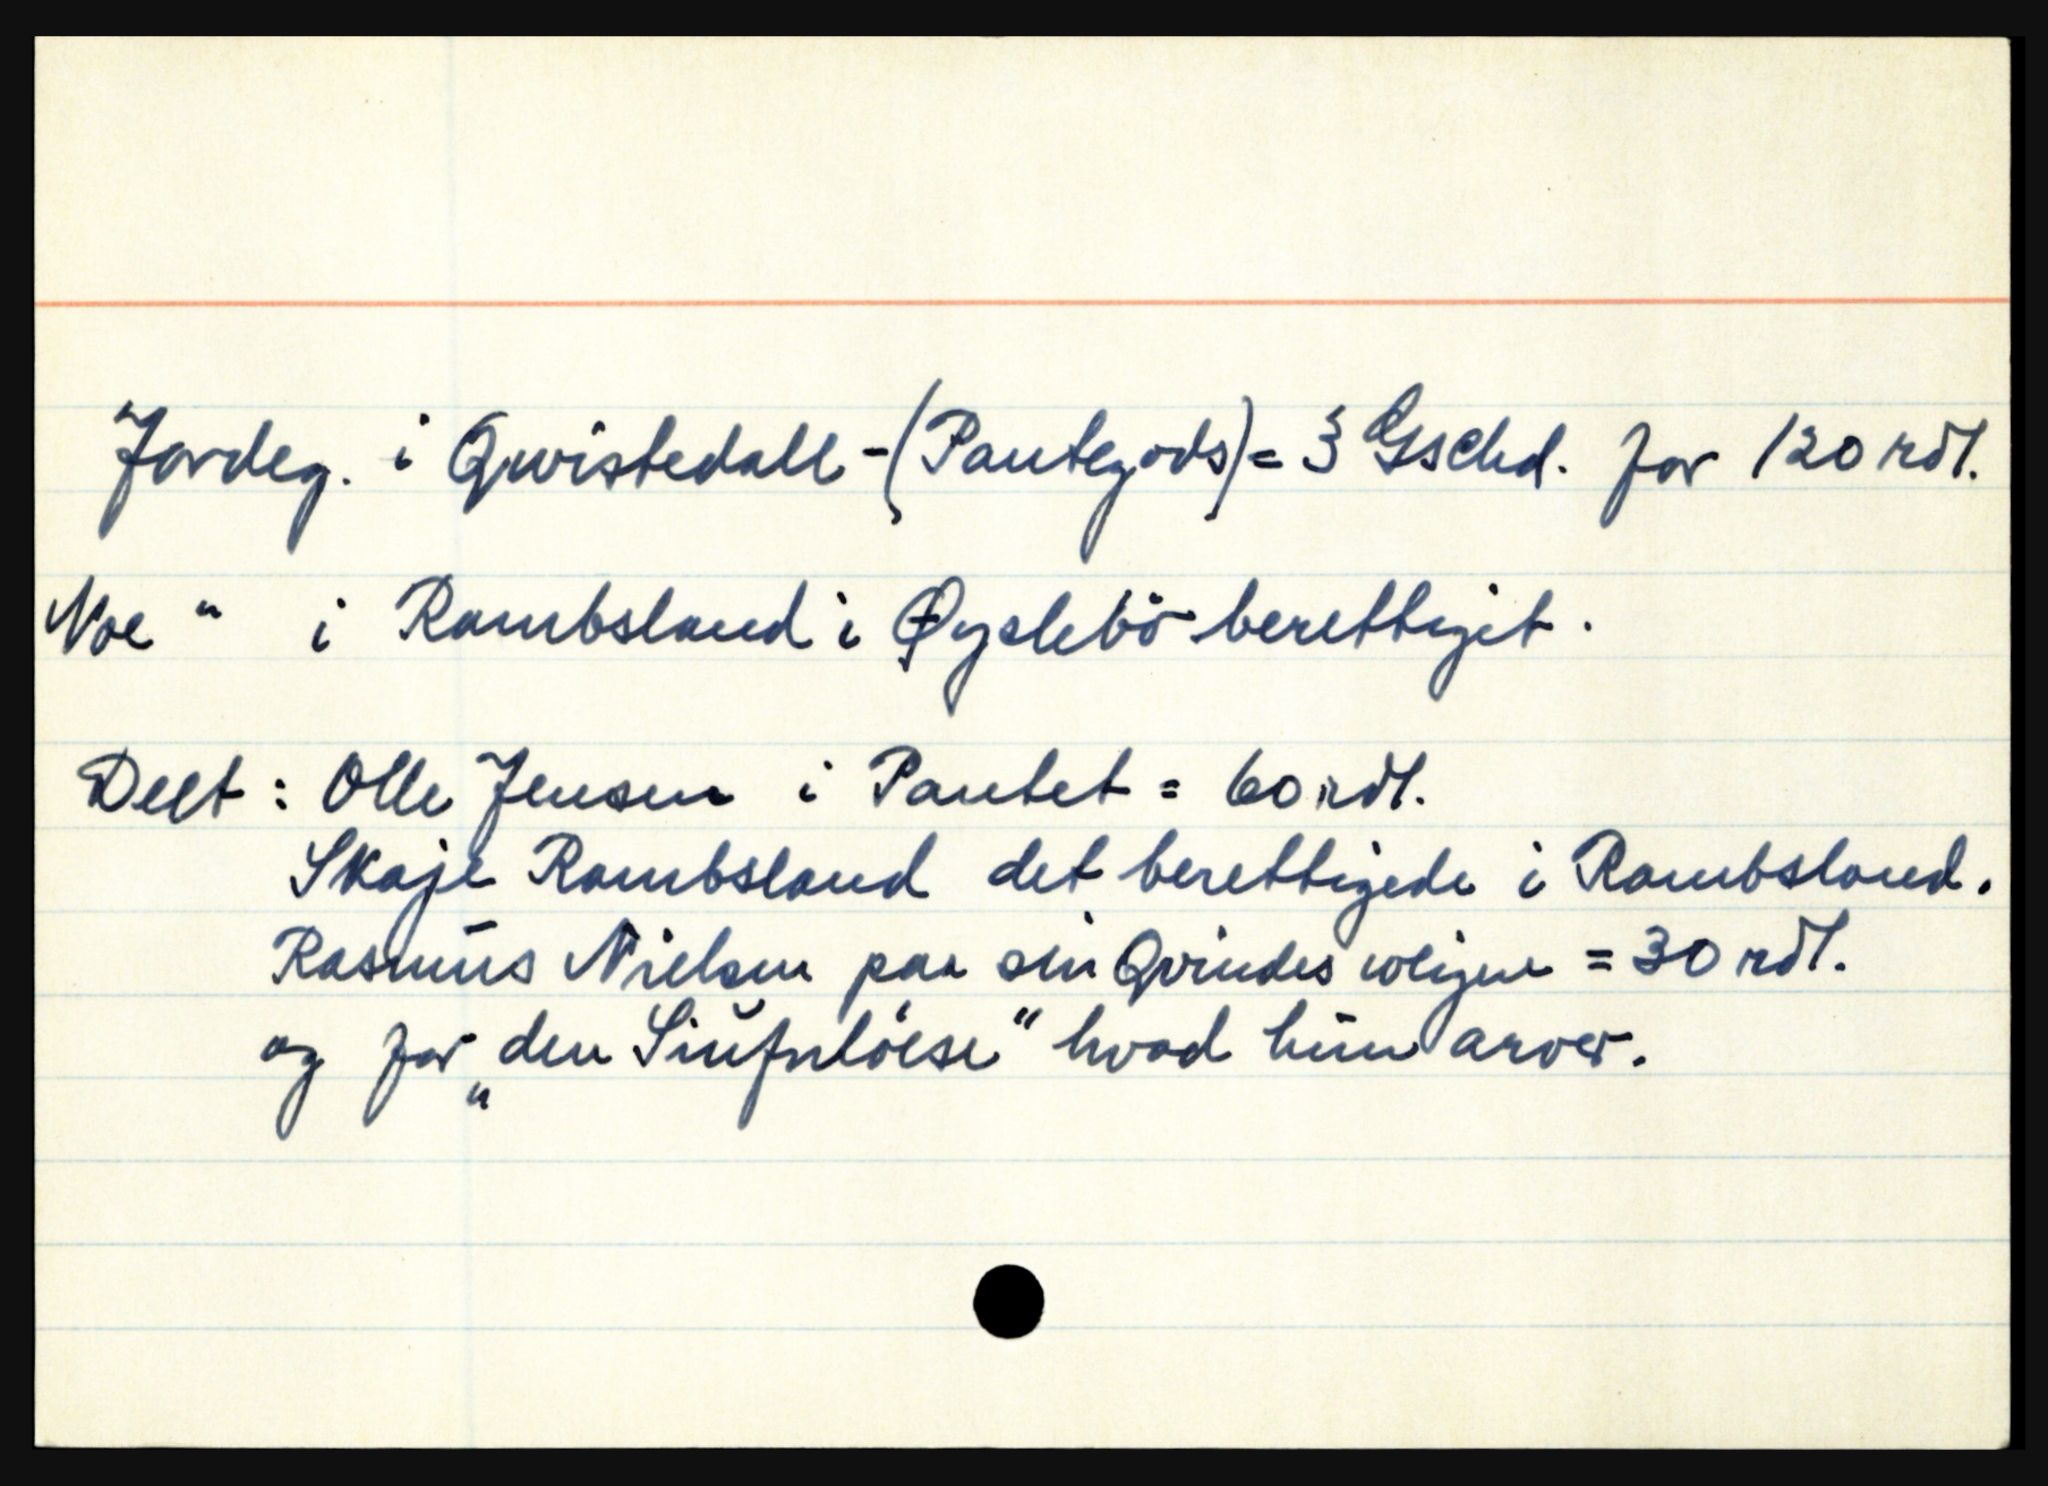 Jordeg. i Qwistedall - (Pantegods) = 3 Gschd. for 120 rdl.
Noe " i Rambsland i Øyslebö berettiget.
Deelt : Olle Jensen i Pantet = 60 rdl.
Skaje Rambsland det berettigede i Rambsland.
Rasmŭs Nielsen paa sin Qvindes weigne = 30 rdl.
og for „den Siŭfnlöese" hvad hŭn arver.